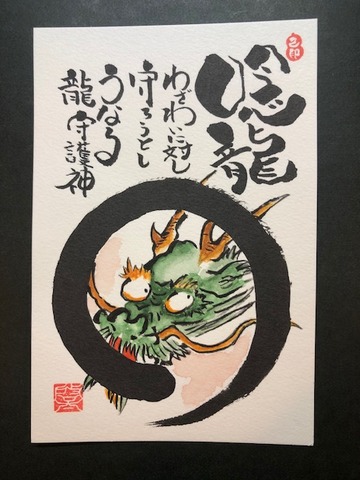 唸龍
わざわいに対し
守ろうとし
うなる
龍守護神